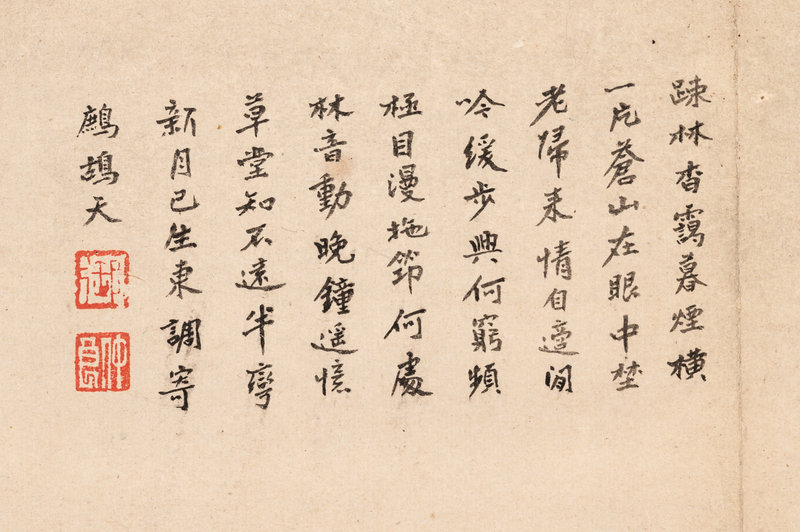 踈林杳靄暮煙橫
一片蒼山在眼中埜
老歸來情自適閒
吟緩步興何窮頻
極目漫拖笻何處
林音動晚鐘遥憶
草堂知不遠半彎
新月已生東調寄
鷓鴣天
仲